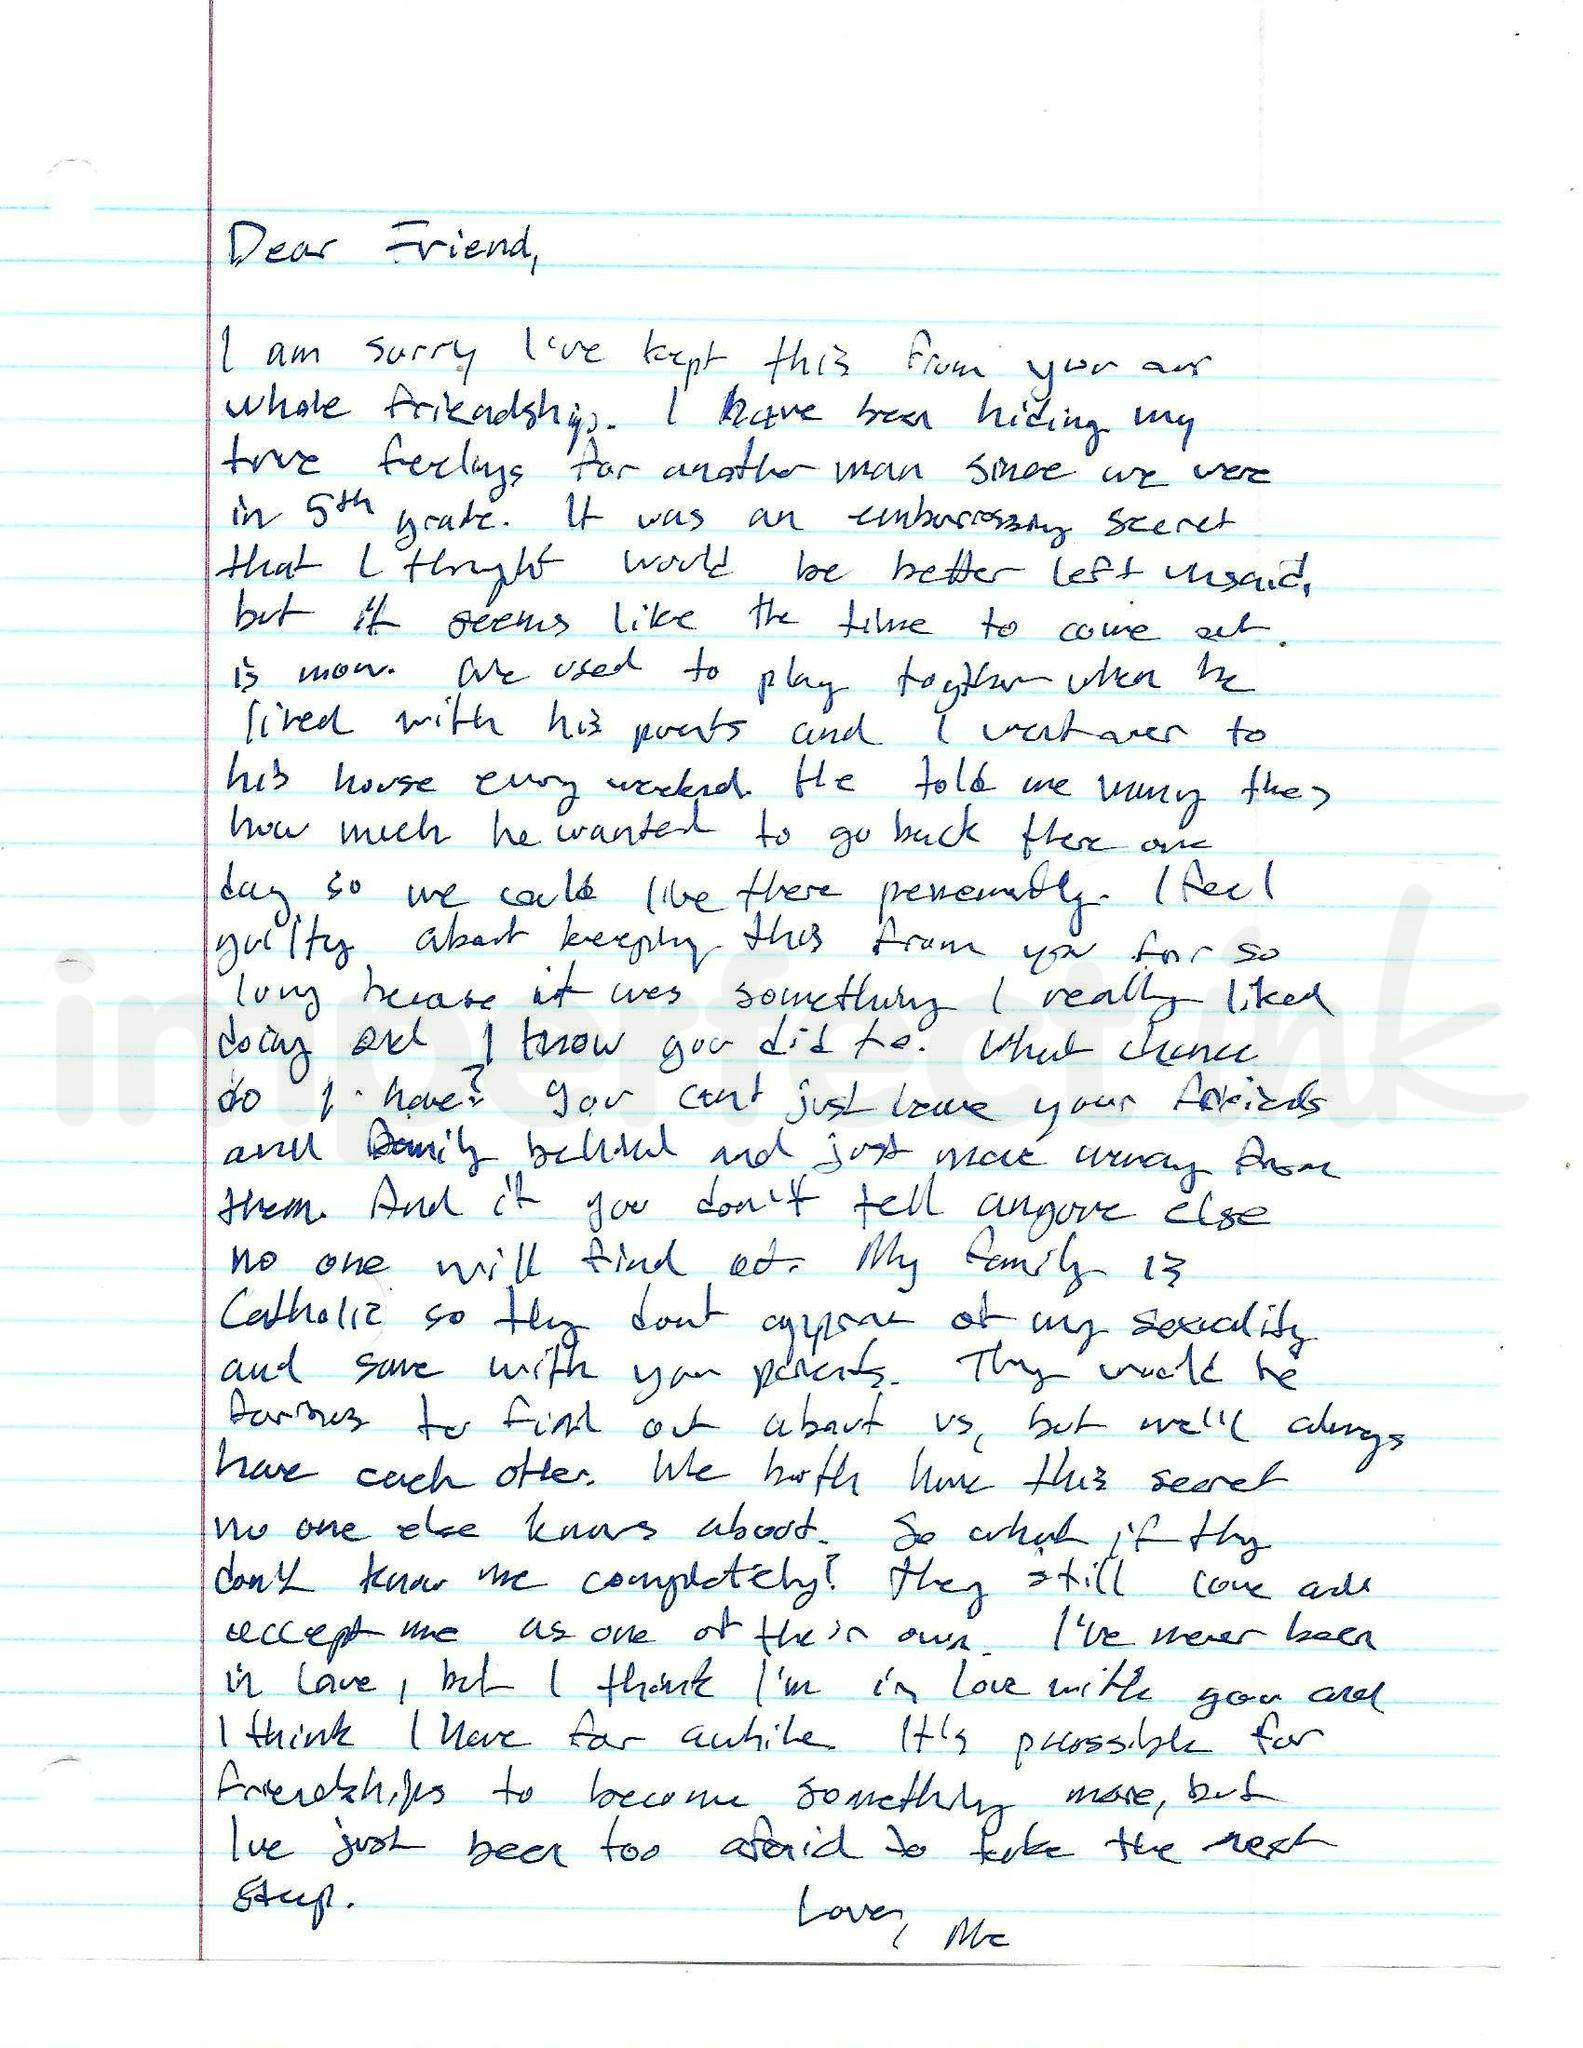 Dear Friend,
I am sorry I've kept this from you our
whole friendship. I have been hiding my
true feelings for another man since we were
in 5th grade. It was an embarrassing secret
that I thought would be better left unsaid,
but it seems like the time to come out
is now. We used to play together when he
lived with his parents and I went over to
his house every weekend. He told me many times
how much he wanted to go back there one
day so we could live there permenantly. I feel
guilty about keeping this from you for so
long because it was something I really liked
doing and I know you did to. What chance
do I have? You cant just leave your friends
and family behind and just move away from
them. And if you don't tell anyone else
no one will find out. My family is
Catholic so they dont approve of my sexuality
and same with your parents. They would be
furious to find out about us, but we'll always
have each other. We both have this secret
no one else knows about. So what if they
don't know me completely? They still love and
accept me as one of their own. I've never been
in love, but I think I'm in love with you and
I think I have for awhile. It's possible for
friendships to become something more, but
I've just been too afraid to take the next
step.
Love, Me
imperfect ink